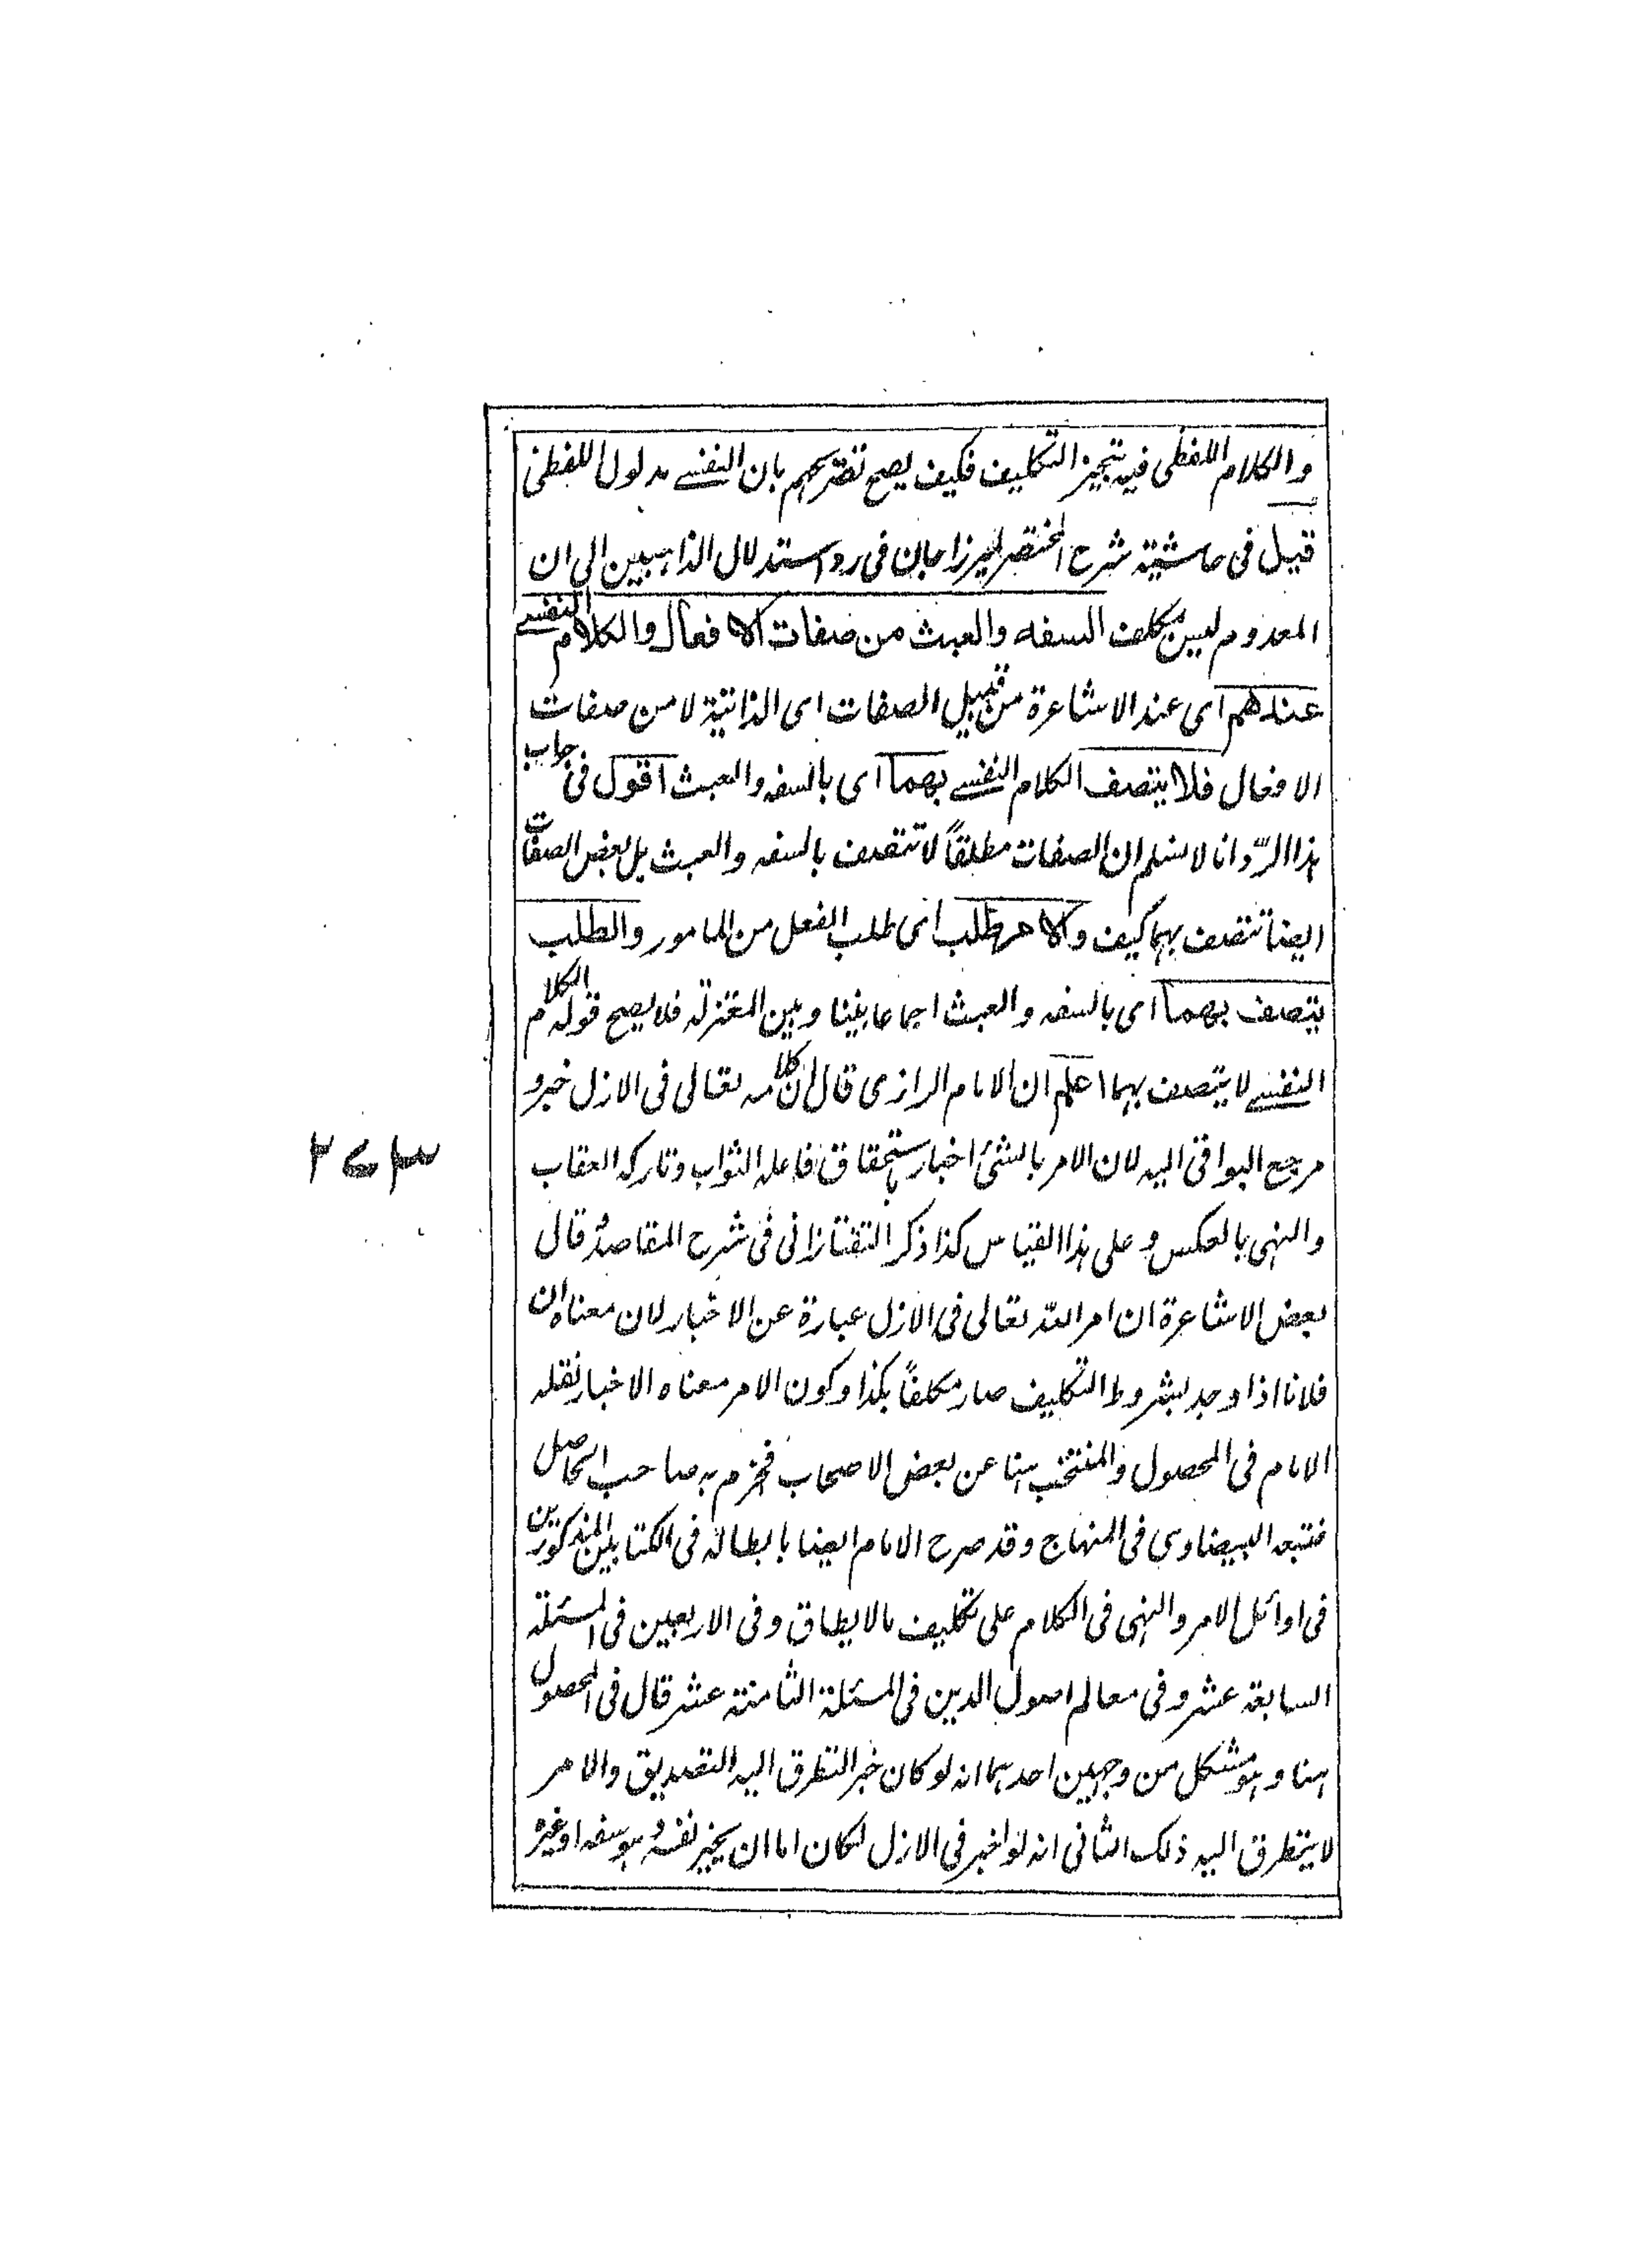 والكلام اللفظى فيه تنجيز التكليف فكيف يصح تصريحهم بان النفسے مدلول اللفظى
قيل فى حاشية شرح المختصر لميرزا جان فى رد استدلال الذاهبين الى ان
المعدوم ليس بمكلف السفه والعبث من صفات الافعال والكلام النفسے
عندهم اى عند الاشاعرة من قبيل الصفات اى الذاتية لا من صفات
الافعال فلا يتصف الكلام النفسے بهما اى بالسفه والعبث اقول فى جواب
هذا الردّ انا لا نسلم ان الصفات مطلقاً لا تتصف بالسفه والعبث بل بعض الصفات
ايضا تتصف بهما كيف والامر طلب اى طلب الفعل من المامور والطلب
يتصف بهما اى بالسفه والعبث اجماعا بيننا وبين المعتزلة فلا يصح قوله الكلام
النفسے لا يتصف بهما اعلم ان الامام الرازى قال ان كلامه تعالى فى الازل خبر و
مرجع البواقى اليه لان الامر بالشئ اخبار باستحقاق فاعله الثواب وتاركه العقاب
والنهى بالعكس وعلى هذا القياس كذا ذكر التفتازانى فى شرح المقاصد و قال
بعض الاشاعرة ان امر الله تعالى فى الازل عبارة عن الاخبار لان معناه ان
فلانا اذا وجد بشروط التكليف صار مكلفاً بكذا وكون الامر معناه الاخبار نقله
الامام فى المحصول والمنتخب هنا عن بعض الاصحاب فجزم به صاحب الحاصل
فتبعه البيضاوى فى المنهاج وقد صرح الامام ايضا بابطاله فى الكتابين المذكورين
فى اوائل الامر والنهى فى الكلام على تكليف ما لا يطاق وفى الاربعين فى المسئلة
السابعة عشر وفى معالم اصول الدين فى المسئلة الثامنة عشر قال فى المحصول
هنا وهو مشكل من وجهين احدهما انه لو كان خبرا لتطرق اليه التصديق والامر
لا يتطرق اليه ذلك الثانى انه لو اخبر فى الازل لكان اما ان يخبر نفسه و هو سفه او غيره
٢٧٣